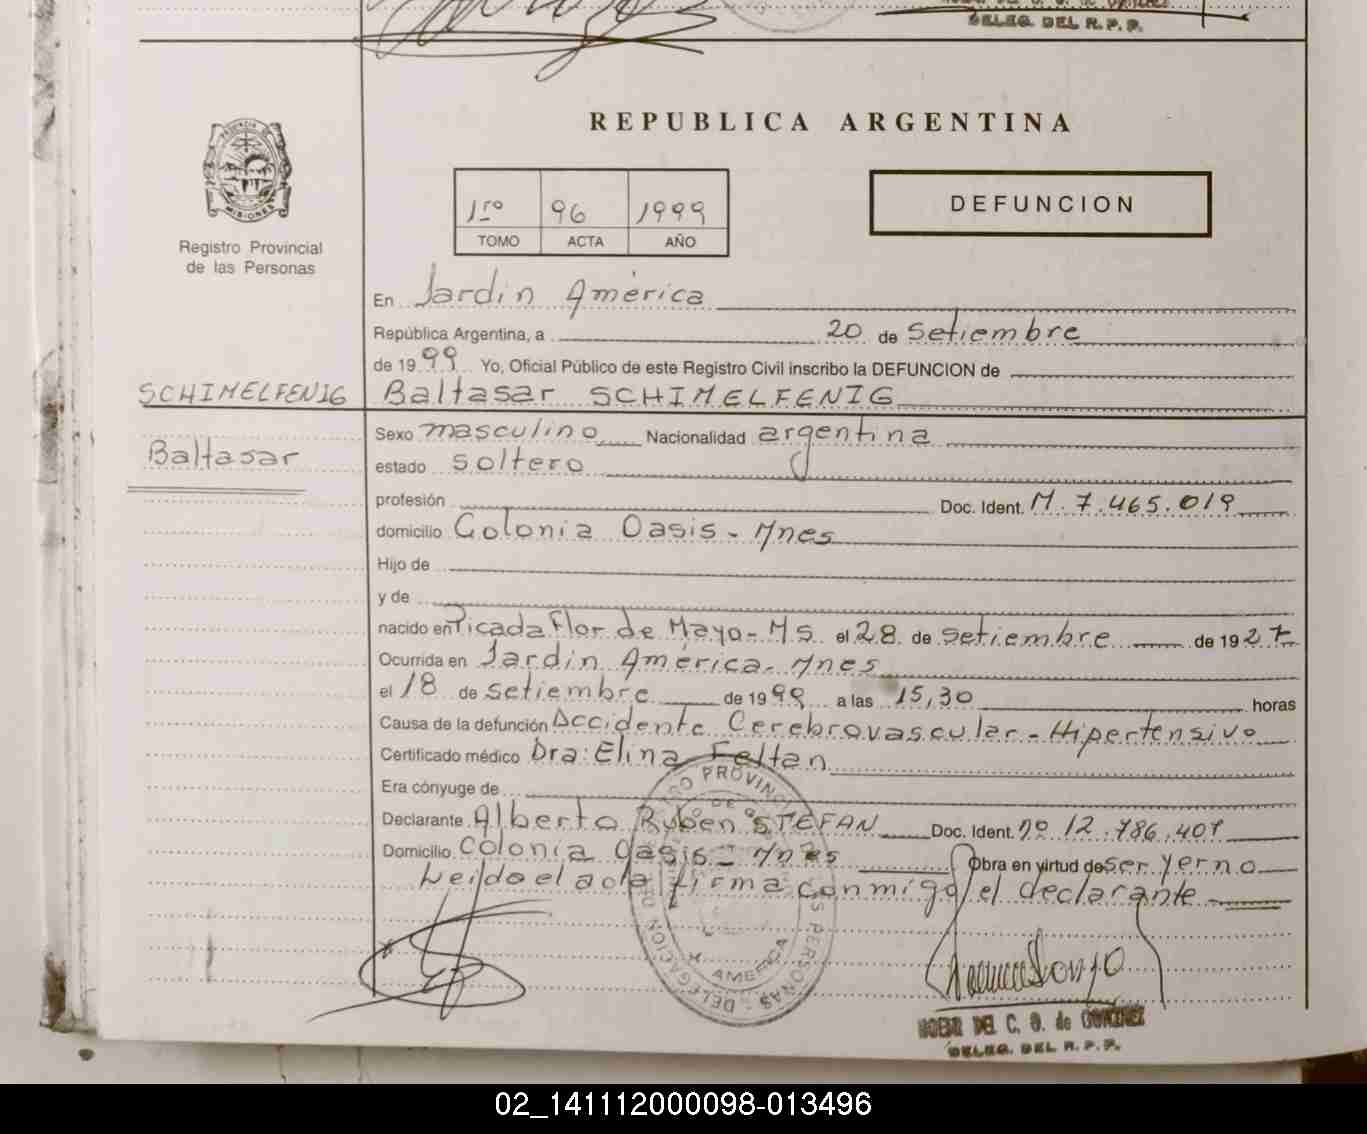 DELEG. DEL R.P.P.
REPUBLICA ARGENTINA
PROVINCIA DE
MISIONES
Registro Provincial
de las Personas
1ro 96 1999
TOMO ACTA AÑO
DEFUNCION
En Jardin América
República Argentina, a 20 de Setiembre
de 1999 Yo, Oficial Público de este Registro Civil inscribo la DEFUNCION de
SCHIMELFENIG Baltasar SCHIMELFENIG
Baltasar
Sexo masculino Nacionalidad argentina
estado soltero
profesión Doc. Ident. M. 7.465.019
domicilio Colonia Oasis - Mnes
Hijo de
y de
nacido en Picada Flor de Mayo - Ms el 28 de setiembre de 1927
Ocurrida en Jardin América - Mnes
el 18 de setiembre de 1999 a las 15,30 horas
Causa de la defunción Accidente Cerebrovascular - Hipertensivo
Certificado médico Dra: Elina Feltan
Era cónyuge de
Declarante Alberto Ruben STEFAN Doc. Ident. nº 12.786.407
Domicilio Colonia Oasis - Mnes Obra en virtud de ser yerno
Leido el acta firma conmigo el declarante
AMERICA
DEL C. G. de GONZALEZ
DELEG. DEL R.P.P.
02_141112000098-013496